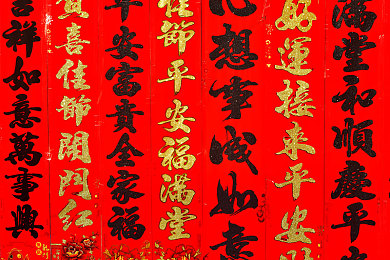 滿堂和順慶平
好運接來平安
心想事成如意
佳節平安福滿堂
平安富貴全家福
賀喜佳節開門紅
吉祥如意萬事興